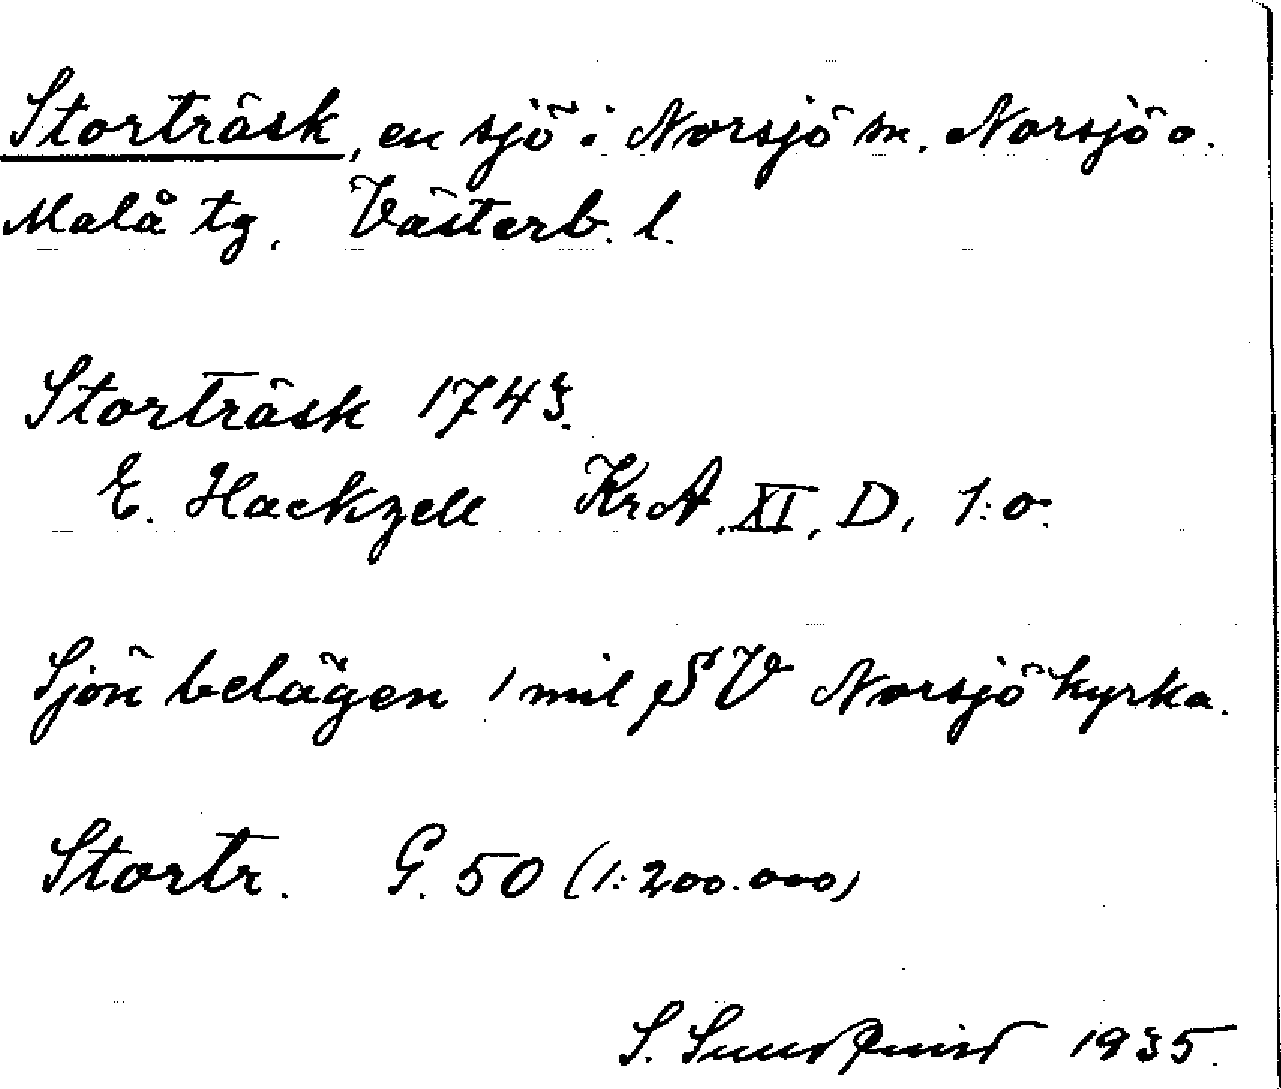 Storträsk, en sjö i Norsjö sn. Norsjö o.
Malå tg. Västerb. l.
Storträsk 1743.
E. Hackzell KrA, XI, D, 1:o.
Sjön belägen 1 mil SV Norsjö kyrka.
Stortr. G. 50 (1:200.000)
S. Sundqvist 1935.